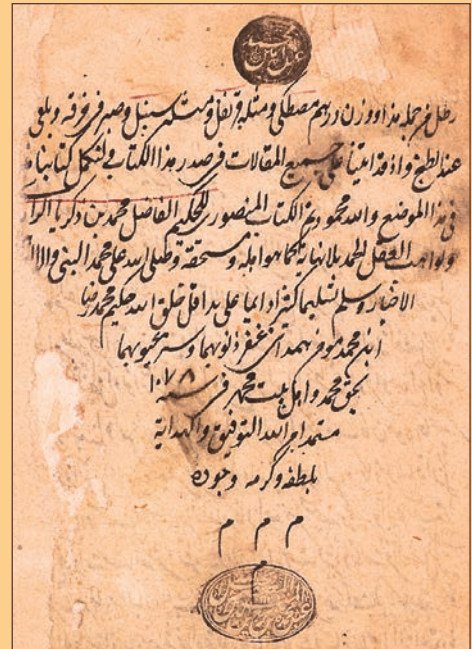 رطل خمر جمله هذا ووزن درهم مصطکی ومثله قرنفل ومثله سنبل وصبر فی خرقه ویلقی
عند الطبخ واذ قد اتینا علی جمیع المقالات فی صدر هذا الکتاب فلنکمل کتابنا
فی هذا الموضع والله محمود تم الکتاب المنصوری للحکیم الفاضل محمد بن زکریا الرازی
ولواهب العقل الحمد بلانهایة کما هو اهله و مستحقه وصلی الله علی محمد النبی واله
الاخیار وسلم تسلیما کثیرا دایما علی ید اقل خلق الله حکیم محمد رضا
ابن محمد همدانی غفر ذنوبهما وستر عیوبهما
بحق محمد واهل بیت محمد فی سنه ۱۰۷۸
مستمدا من الله التوفیق والهدایة
بلطفه وکرمه وجوده
م م م